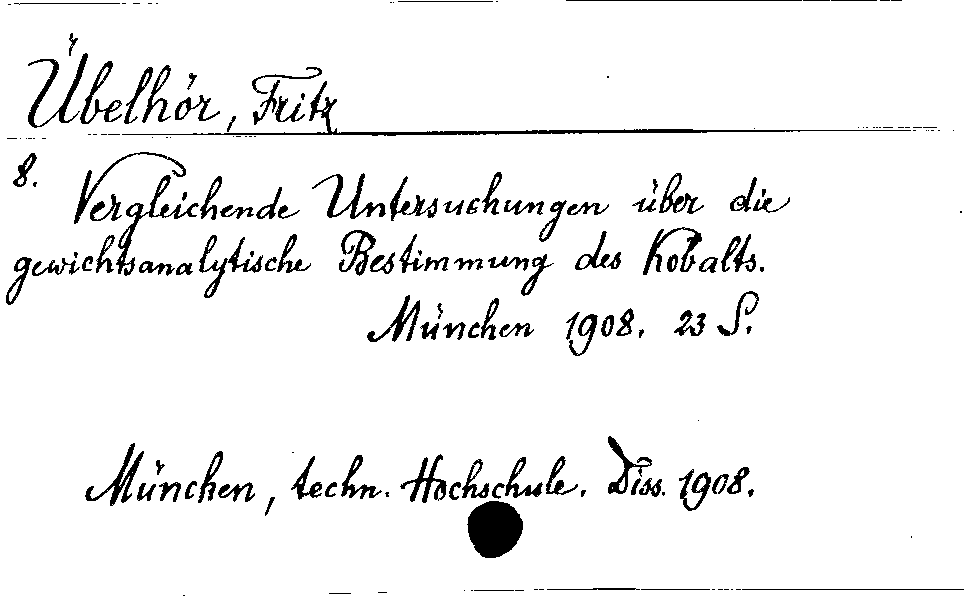 Übelhör, Fritz
8.
Vergleichende Untersuchungen über die
gewichtsanalytische Bestimmung des Kobalts.
München 1908. 23 S.
München, techn. Hochschule. Diss. 1908.